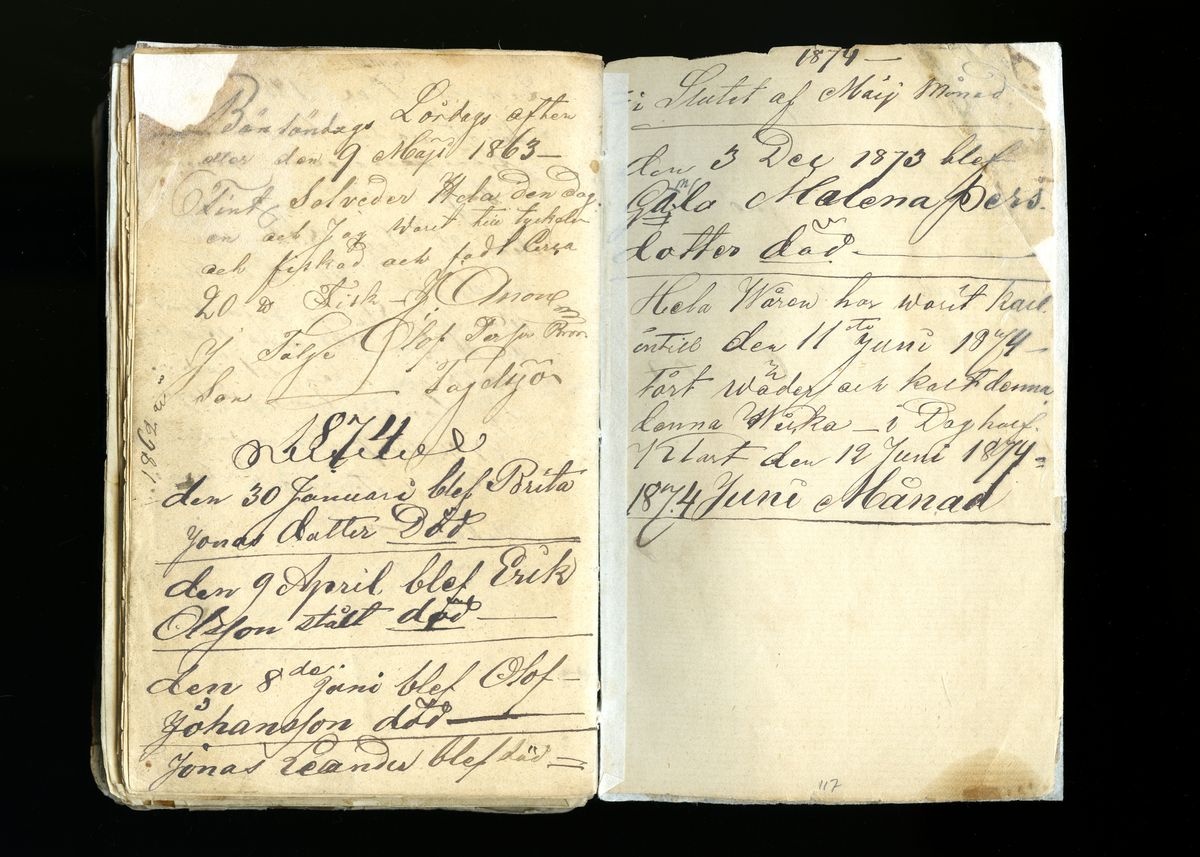 Bönsöndags Lördags aften
eller den 9 Maji 1863—
Fint Solveder Hela den Dag
en och Jag warit till
och fiskad och fådt Cirsa
20 ℔ Fisk — J Anon
J Fölge Olof Persson
Son Togelsjö
1862
1874
den 30 Januari blef Brita
Jonas dotter Död
den 9 April blef Erik
Olsson stålt död
den 8de Juni blef Olof
Johansson död
Jonas Leander blef död
1874 —
i Slutet af Maij Månad
den 3 Dec 1873 blef
Gamla Malena Pers
dotter död
Hela Wåren har warit kall
intill den 11te Juni 1874
tört wäder och kalt denna
denna Wicka — i Dag half
Klart den 12 Juni 1874
1874 Juni Månad
117